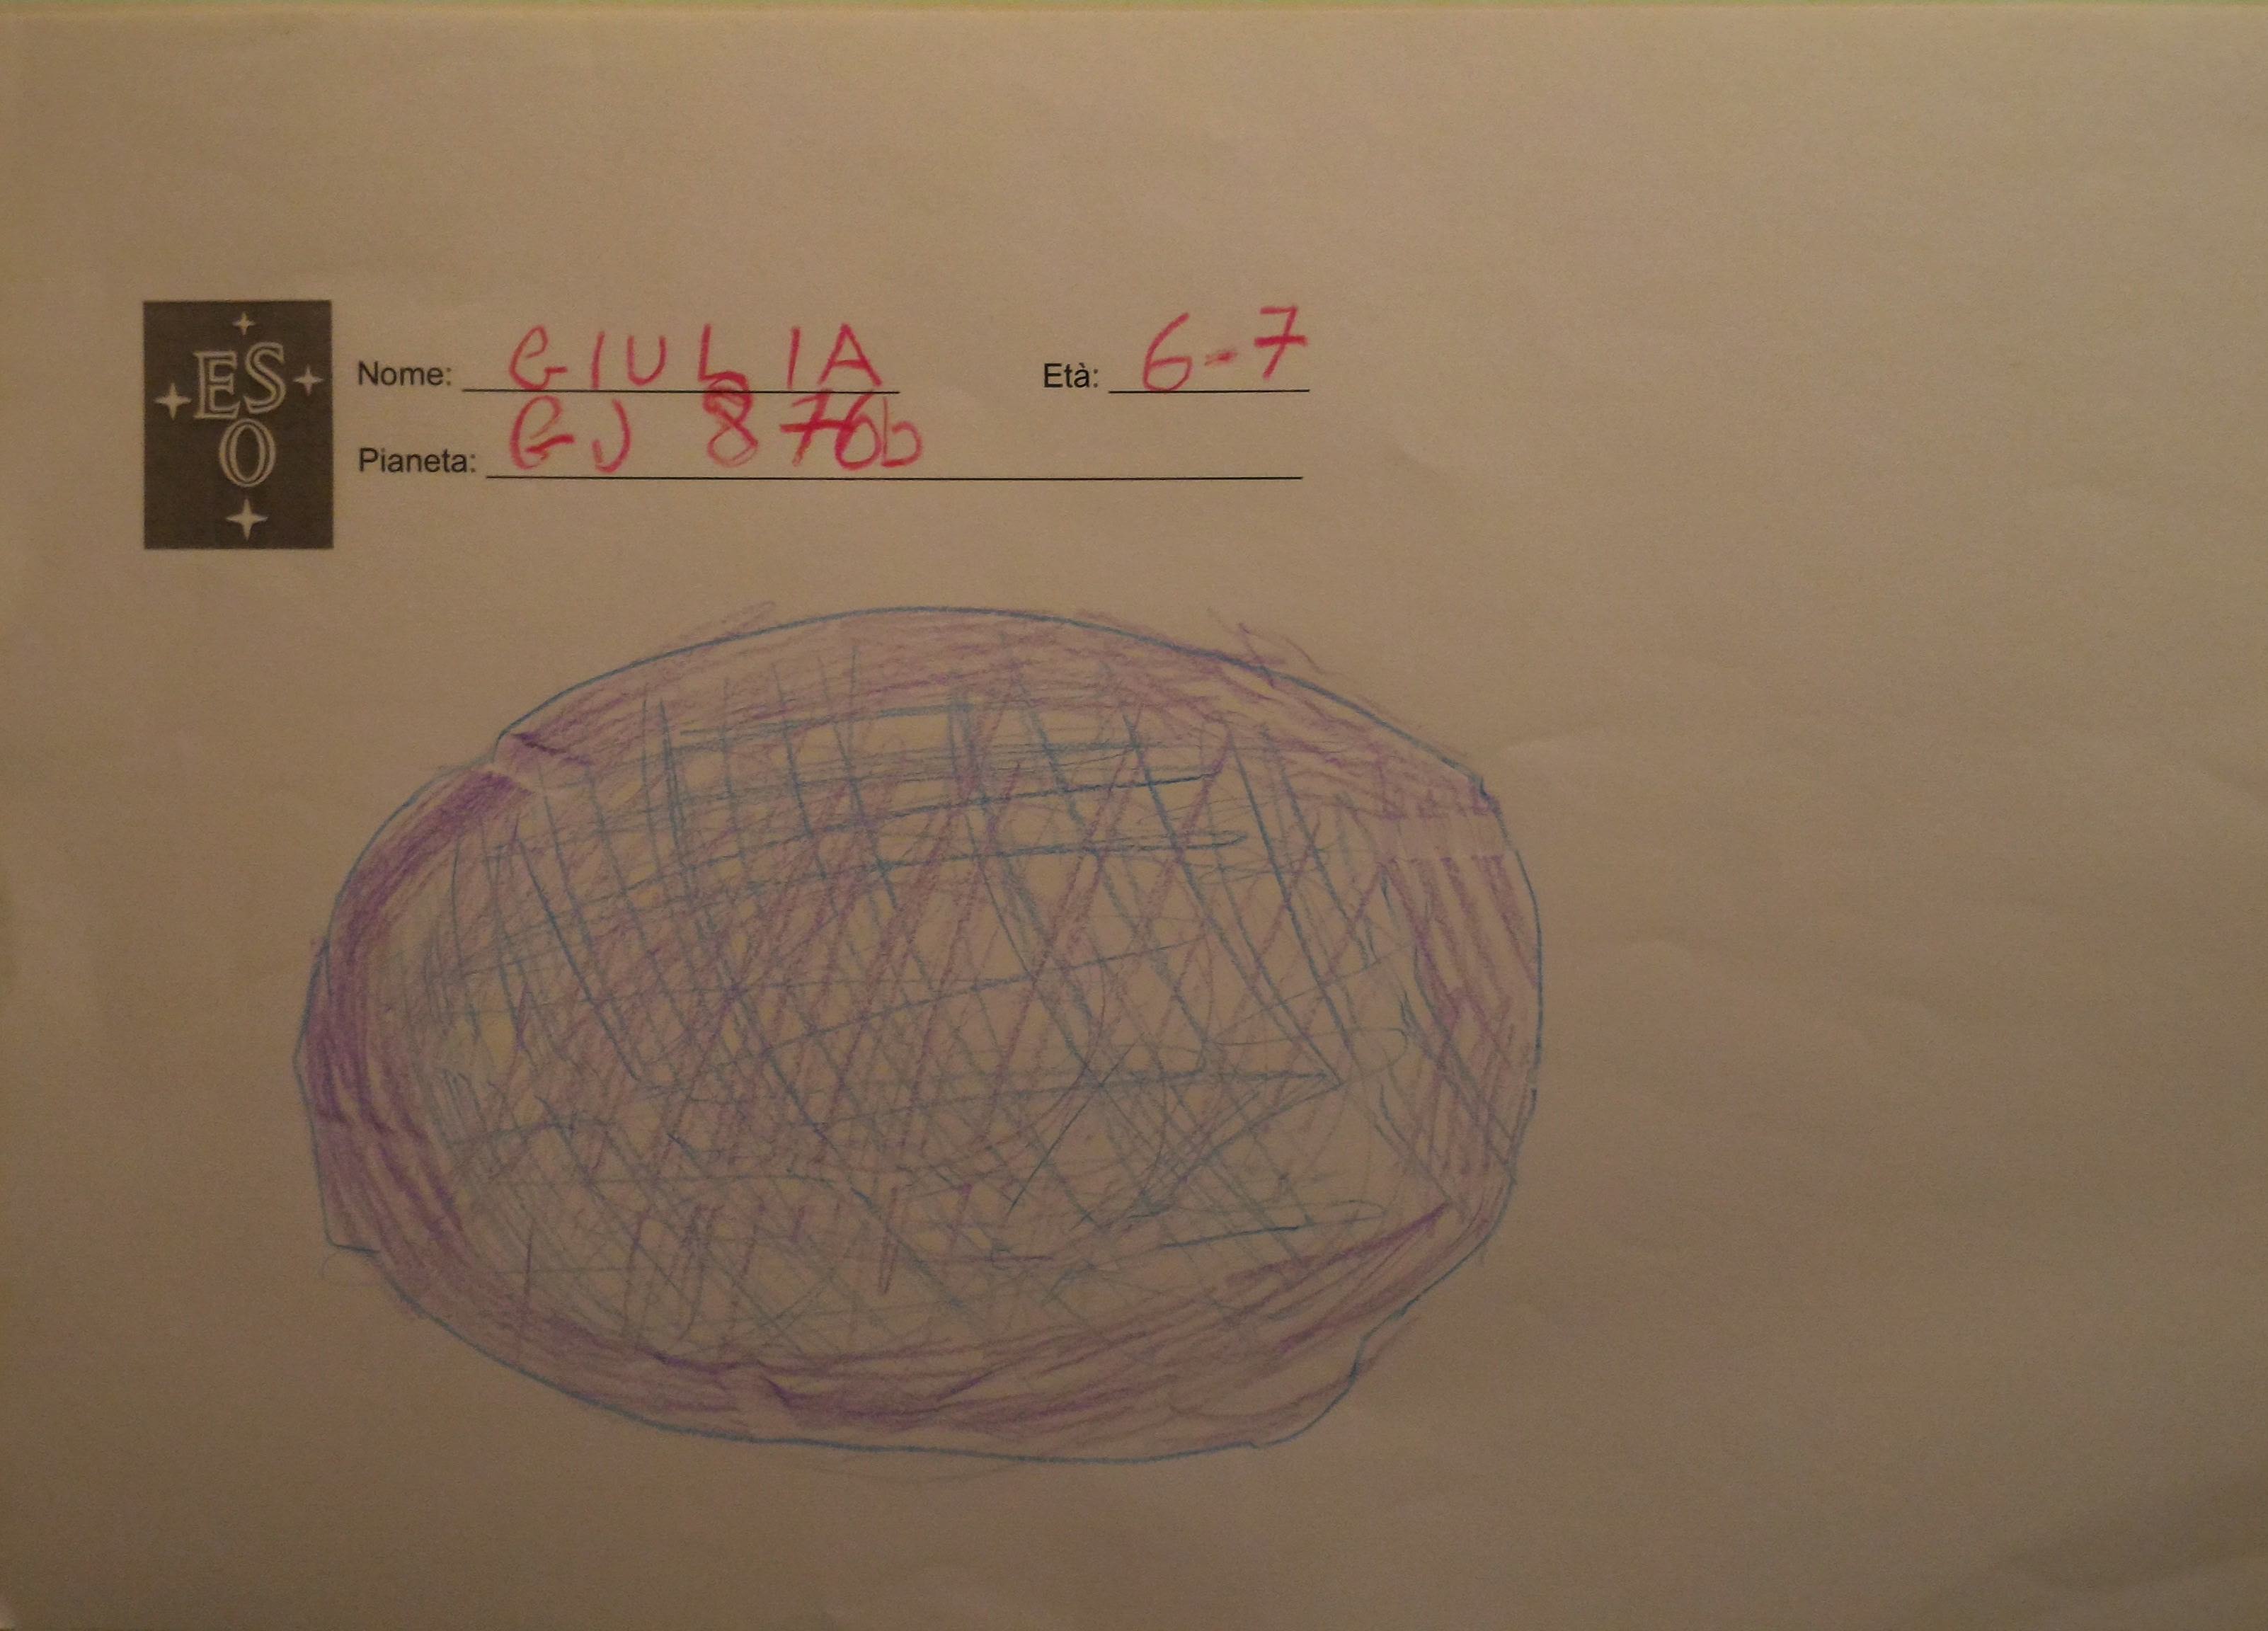 ESO
Nome: GIULIA Età: 6-7
Pianeta: GJ 876b